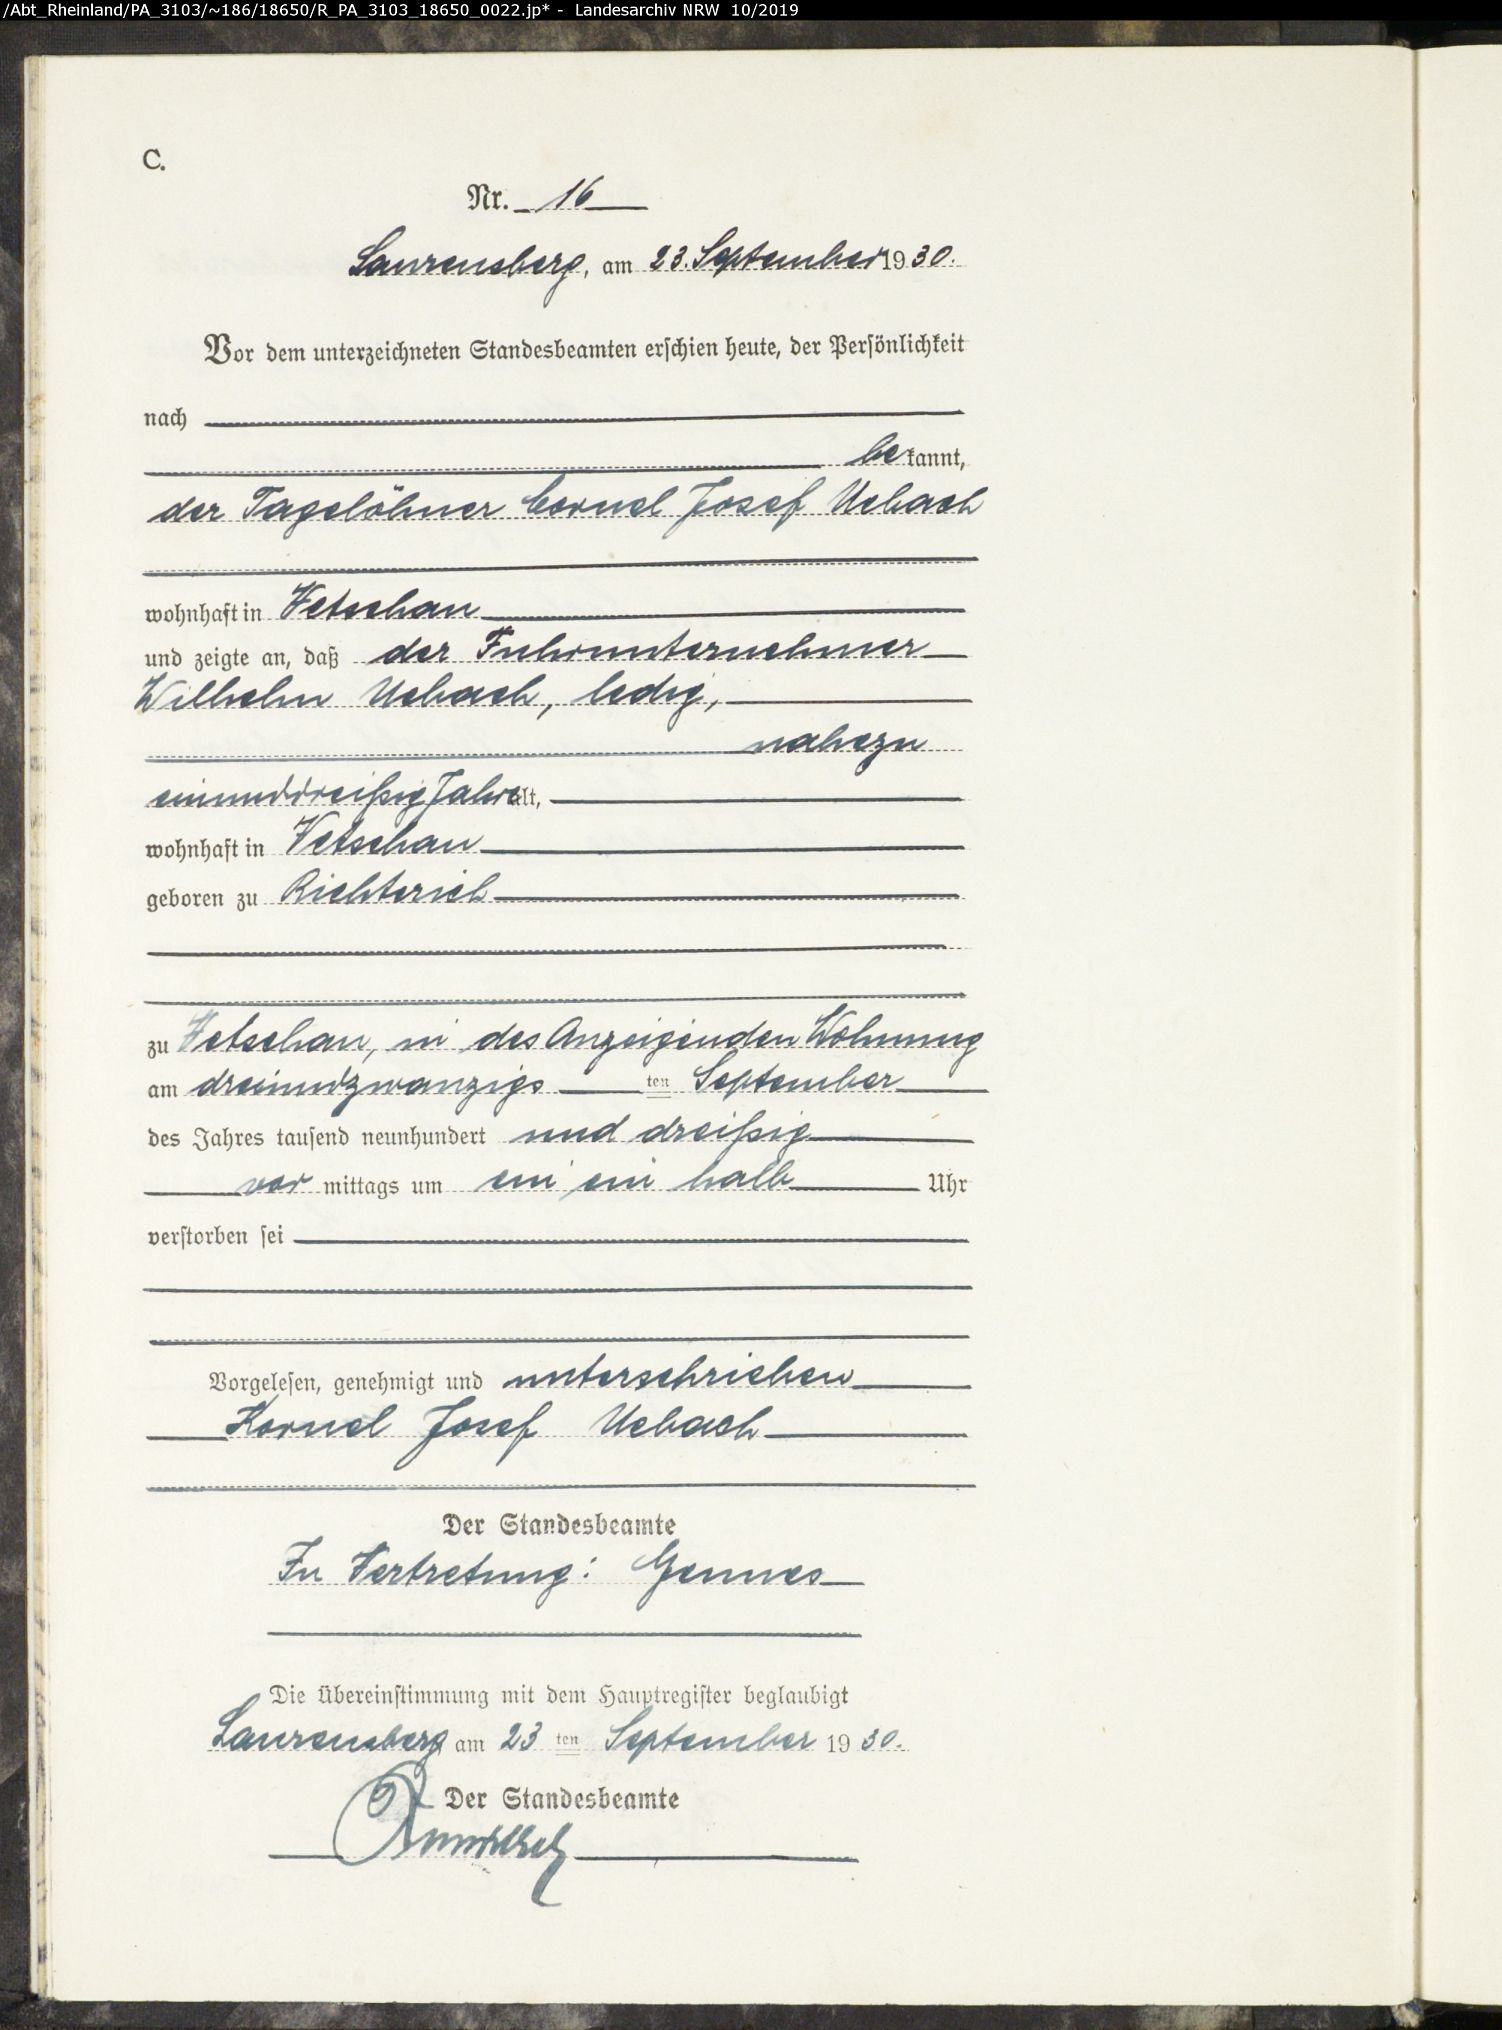 /Abt_Rheinland/PA_3103/~186/18650/R_PA_3103_18650_0022.jp* - Landesarchiv NRW 10/2019
C.
Nr. 16
Laurensberg, am 23. September 1930.
Vor dem unterzeichneten Standesbeamten erschien heute, der Persönlichkeit
nach
bekannt,
der Tagelöhner Cornel Josef Uebach
wohnhaft in Vetschau
und zeigte an, daß der Fuhrunternehmer
Wilhelm Uebach, ledig,
nahezu
einunddreißig Jahre alt,
wohnhaft in Vetschau
geboren zu Richterich
zu Vetschau, in des Anzeigenden Wohnung
am dreiundzwanzigs ten September
des Jahres tausend neunhundert und dreißig
vor mittags um ein ein halb Uhr
verstorben sei
Vorgelesen, genehmigt und unterschrieben
Kornel Josef Uebach
Der Standesbeamte
In Vertretung: Gennes
Die Übereinstimmung mit dem Hauptregister beglaubigt
Laurensberg am 23 ten September 19 30.
Der Standesbeamte